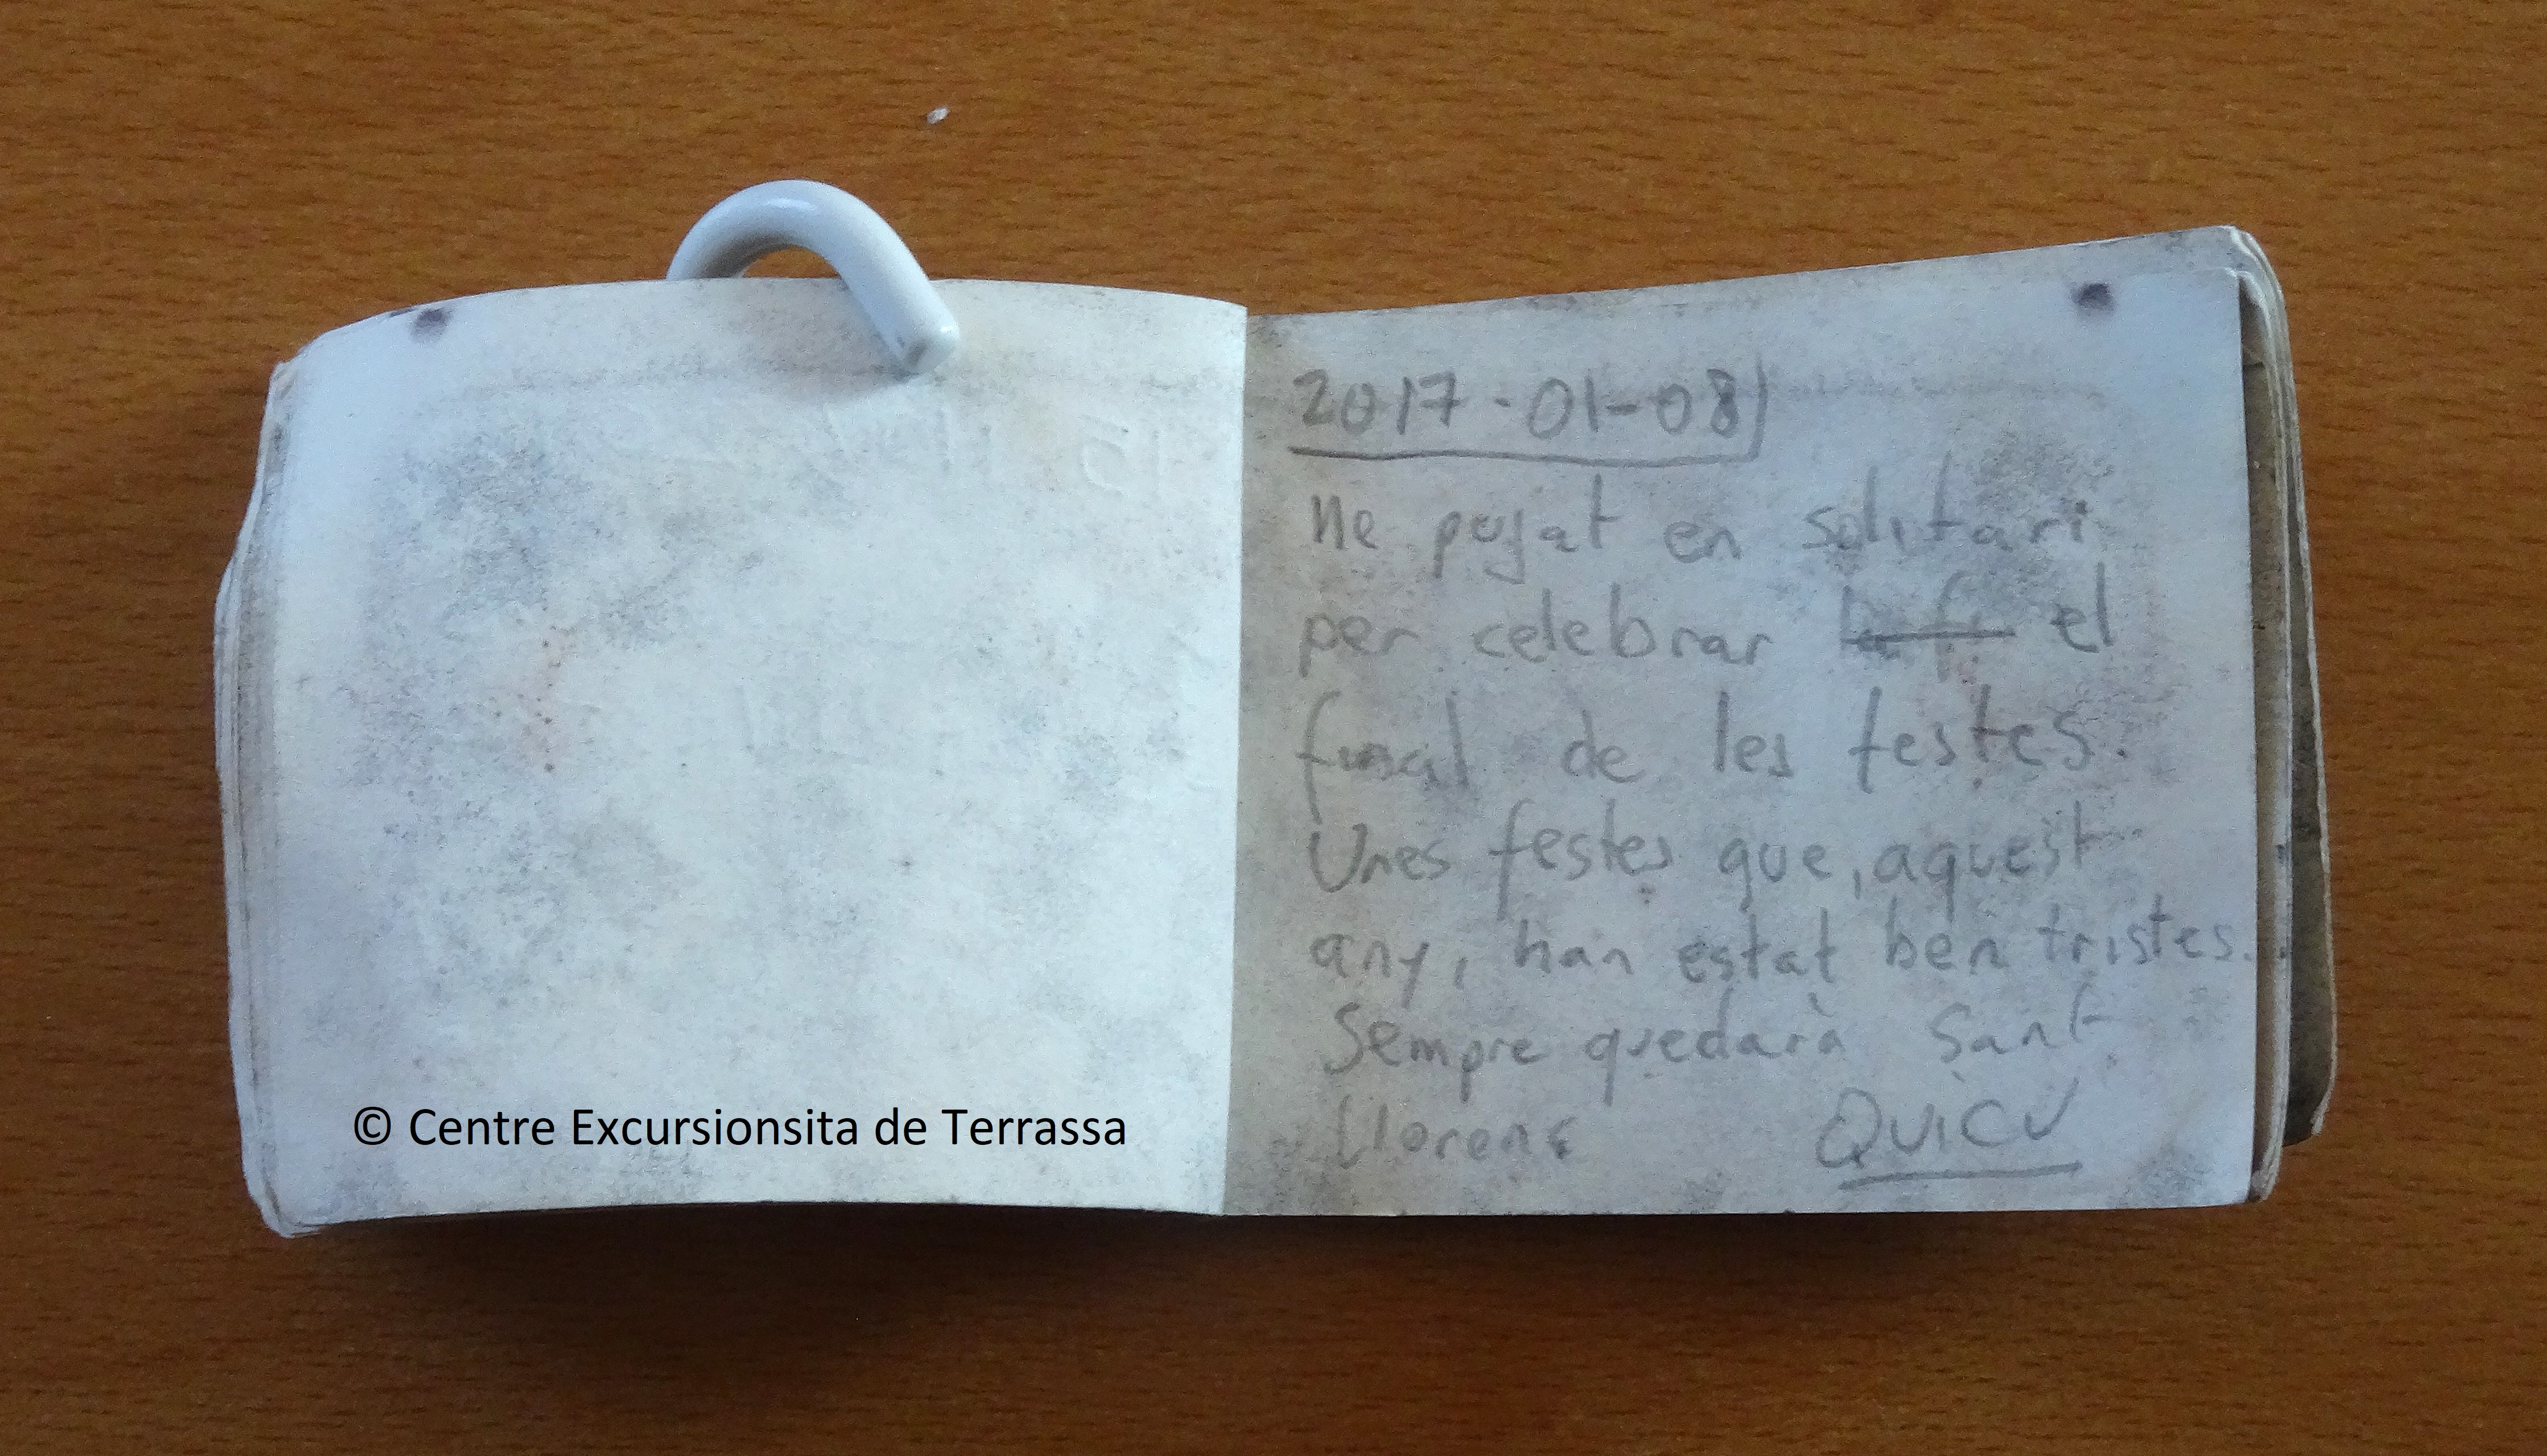 2017-01-08
He pujat en solitari
per celebrar la fi el
final de les festes.
Unes festes que, aquest
any, han estat ben tristes.
Sempre quedarà Sant
Llorenç QUICU
© Centre Excursionsita de Terrassa